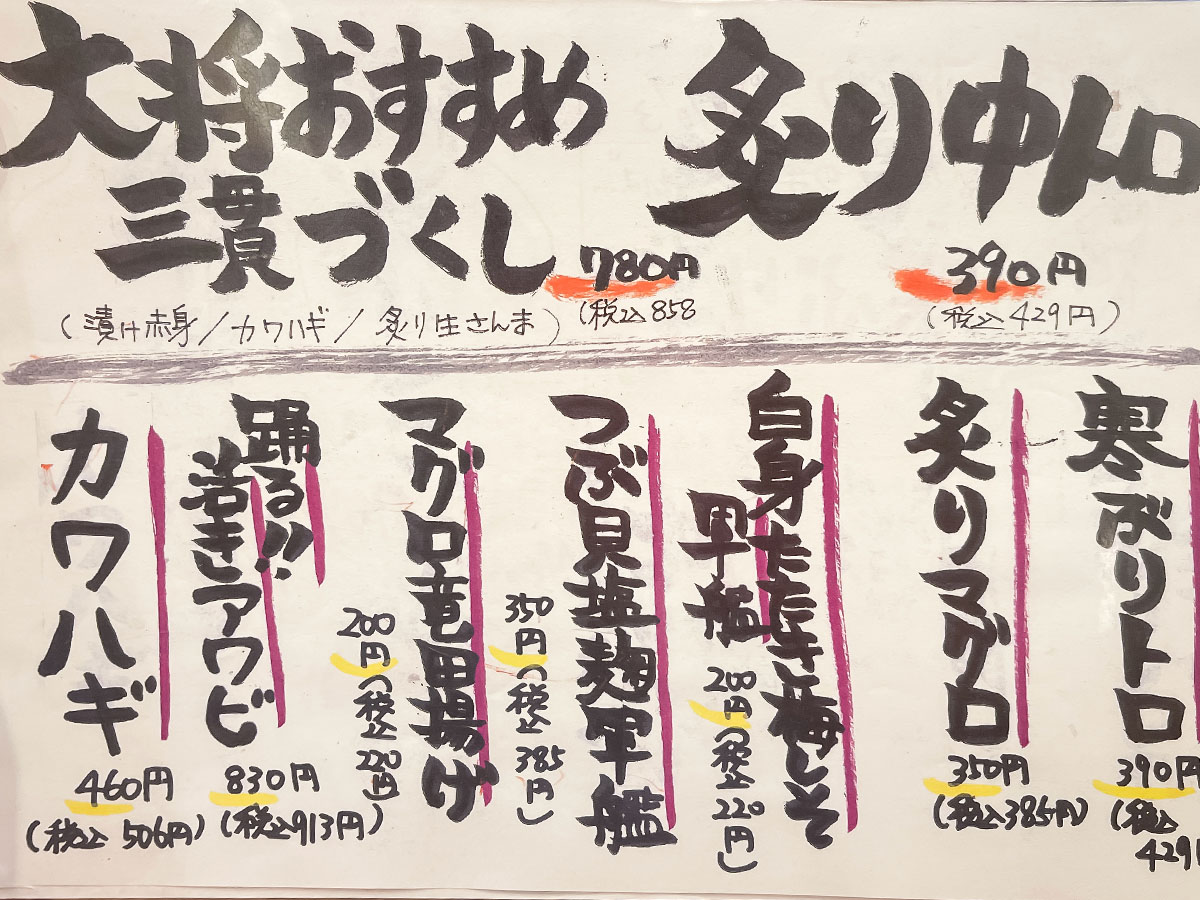 大将おすすめ
三貫づくし
780円
(税込858
(漬け赤身/カワハギ/炙り生さんま)
炙り中トロ
390円
(税込429円)
寒ぶりトロ
390円
(税込
429円
炙りマグロ
350円
(税込385円)
白身たたき梅しそ
軍艦
200円(税込220円)
つぶ貝塩麹軍艦
350円(税込385円)
マグロ竜田揚げ
200円(税込220円
踊る!!
活きアワビ
830円
(税込913円)
カワハギ
460円
(税込506円)